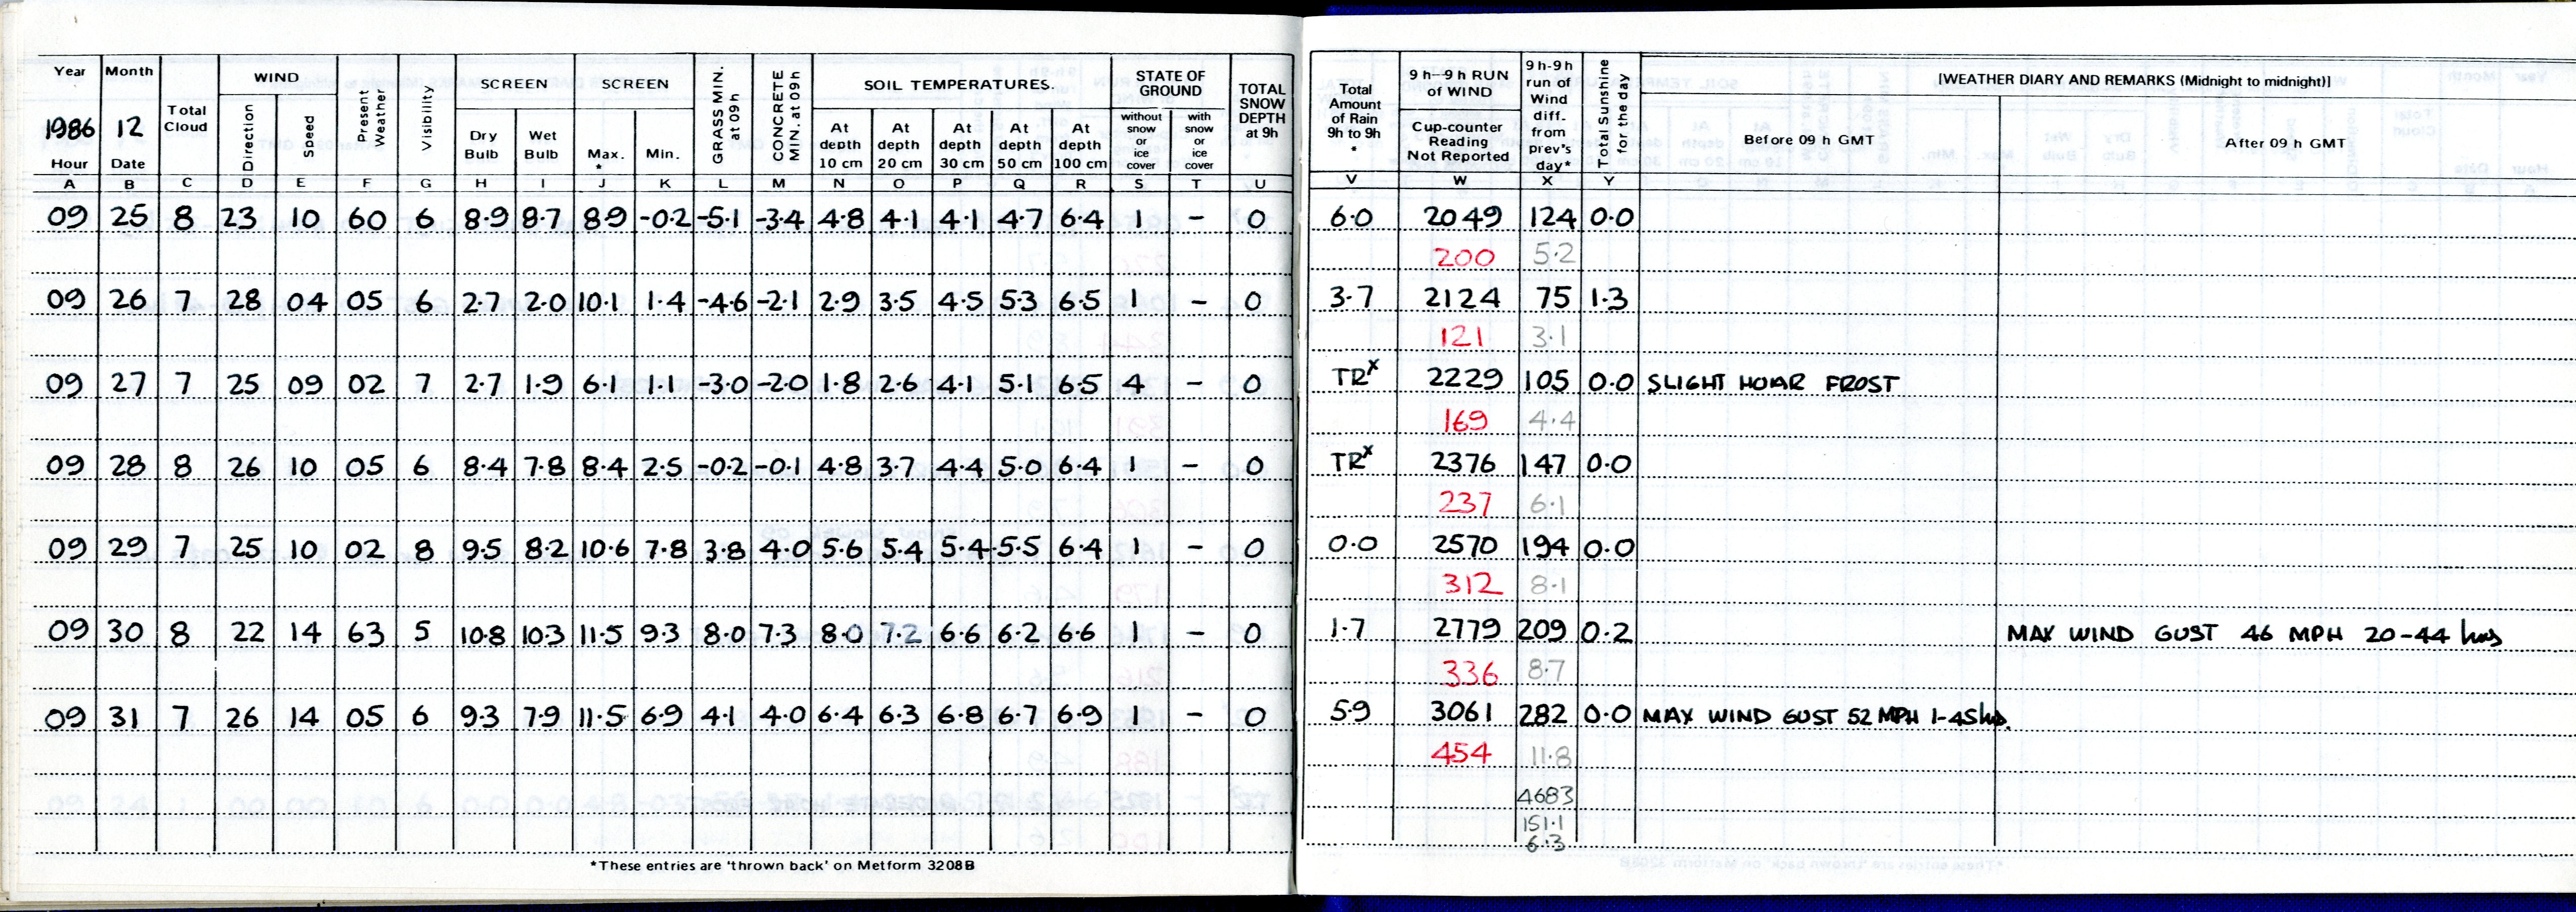 Year Month Total Cloud WIND Present Weather Visibility SCREEN SCREEN GRASS MIN. at 09h CONCRETE MIN. at 09h SOIL TEMPERATURES. STATE OF GROUND TOTAL SNOW DEPTH at 9h Total Amount of Rain 9h to 9h * 9h–9h RUN of WIND 9h-9h run of Wind diff. from prev's day* Total Sunshine for the day [WEATHER DIARY AND REMARKS (Midnight to midnight)]
1986 12 Direction Speed Dry Bulb Wet Bulb Max. * Min. At depth 10 cm At depth 20 cm At depth 30 cm At depth 50 cm At depth 100 cm without snow or ice cover with snow or ice cover Cup-counter Reading Not Reported Before 09 h GMT After 09 h GMT
Hour Date
A B C D E F G H I J K L M N O P Q R S T U V W X Y
09 25 8 23 10 60 6 8.9 8.7 8.9 -0.2 -5.1 -3.4 4.8 4.1 4.1 4.7 6.4 1 – 0 6.0 2049 124 0.0
200 5.2
09 26 7 28 04 05 6 2.7 2.0 10.1 1.4 -4.6 -2.1 2.9 3.5 4.5 5.3 6.5 1 – 0 3.7 2124 75 1.3
121 3.1
09 27 7 25 09 02 7 2.7 1.9 6.1 1.1 -3.0 -2.0 1.8 2.6 4.1 5.1 6.5 4 – 0 TRx 2229 105 0.0 SLIGHT HOAR FROST
169 4.4
09 28 8 26 10 05 6 8.4 7.8 8.4 2.5 -0.2 -0.1 4.8 3.7 4.4 5.0 6.4 1 – 0 TRx 2376 147 0.0
237 6.1
09 29 7 25 10 02 8 9.5 8.2 10.6 7.8 3.8 4.0 5.6 5.4 5.4 5.5 6.4 1 – 0 0.0 2570 194 0.0
312 8.1
09 30 8 22 14 63 5 10.8 10.3 11.5 9.3 8.0 7.3 8.0 7.2 6.6 6.2 6.6 1 – 0 1.7 2779 209 0.2 MAX WIND GUST 46 MPH 20-44 hrs
336 8.7
09 31 7 26 14 05 6 9.3 7.9 11.5 6.9 4.1 4.0 6.4 6.3 6.8 6.7 6.9 1 – 0 5.9 3061 282 0.0 MAX WIND GUST 52 MPH 1-45 hrs.
454 11.8
4683
151.1
6.3
*These entries are 'thrown back' on Metform 3208B